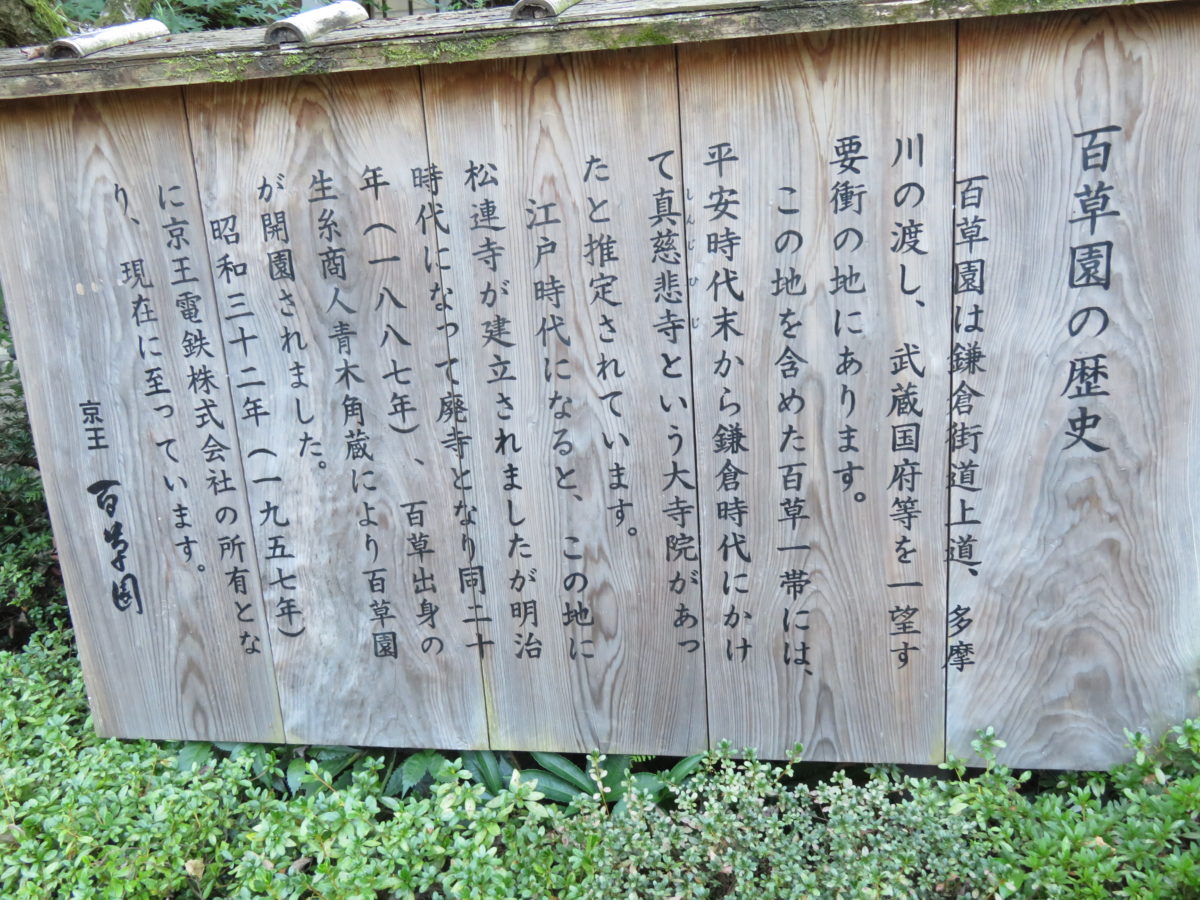 百草園の歴史
百草園は鎌倉街道上道、多摩
川の渡し、武蔵国府等を一望す
要衝の地にあります。
この地を含めた百草一帯には、
平安時代末から鎌倉時代にかけ
て真慈悲寺という大寺院があっ
しんじひじ
たと推定されています。
江戸時代になると、この地に
松連寺が建立されましたが明治
時代になって廃寺となり同二十
年（一八八七年）、百草出身の
生糸商人青木角蔵により百草園
が開園されました。
昭和三十二年（一九五七年）
に京王電鉄株式会社の所有とな
り、現在に至っています。
京王 百草園